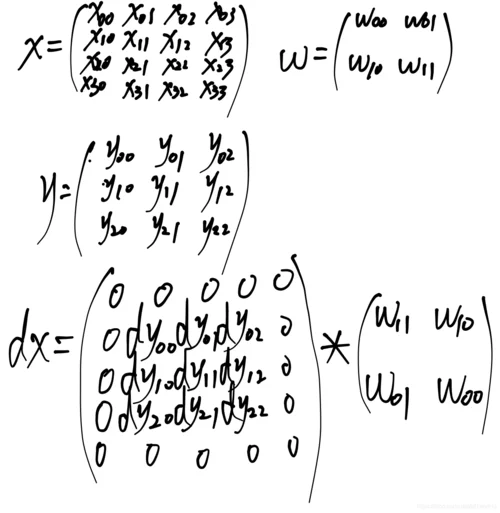 x = ( x00 x01 x02 x03
x10 x11 x12 x13
x20 x21 x22 x23
x30 x31 x32 x33 )
w = ( w00 w01
w10 w11 )
y = ( y00 y01 y02
y10 y11 y12
y20 y21 y22 )
dx = ( 0 0 0 0 0
0 dy00 dy01 dy02 0
0 dy10 dy11 dy12 0
0 dy20 dy21 dy22 0
0 0 0 0 0 )
* ( w11 w10
w01 w00 )